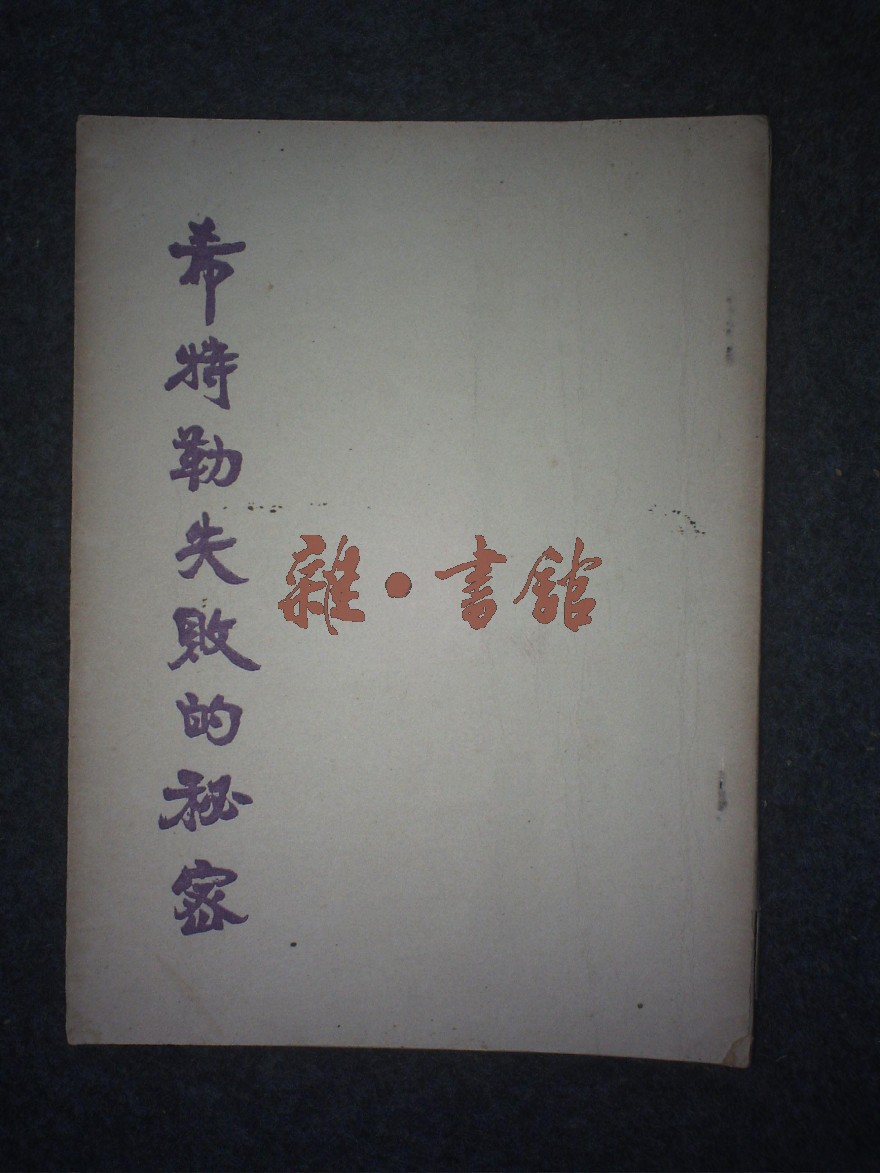 希特勒失敗的秘密
雜·書館